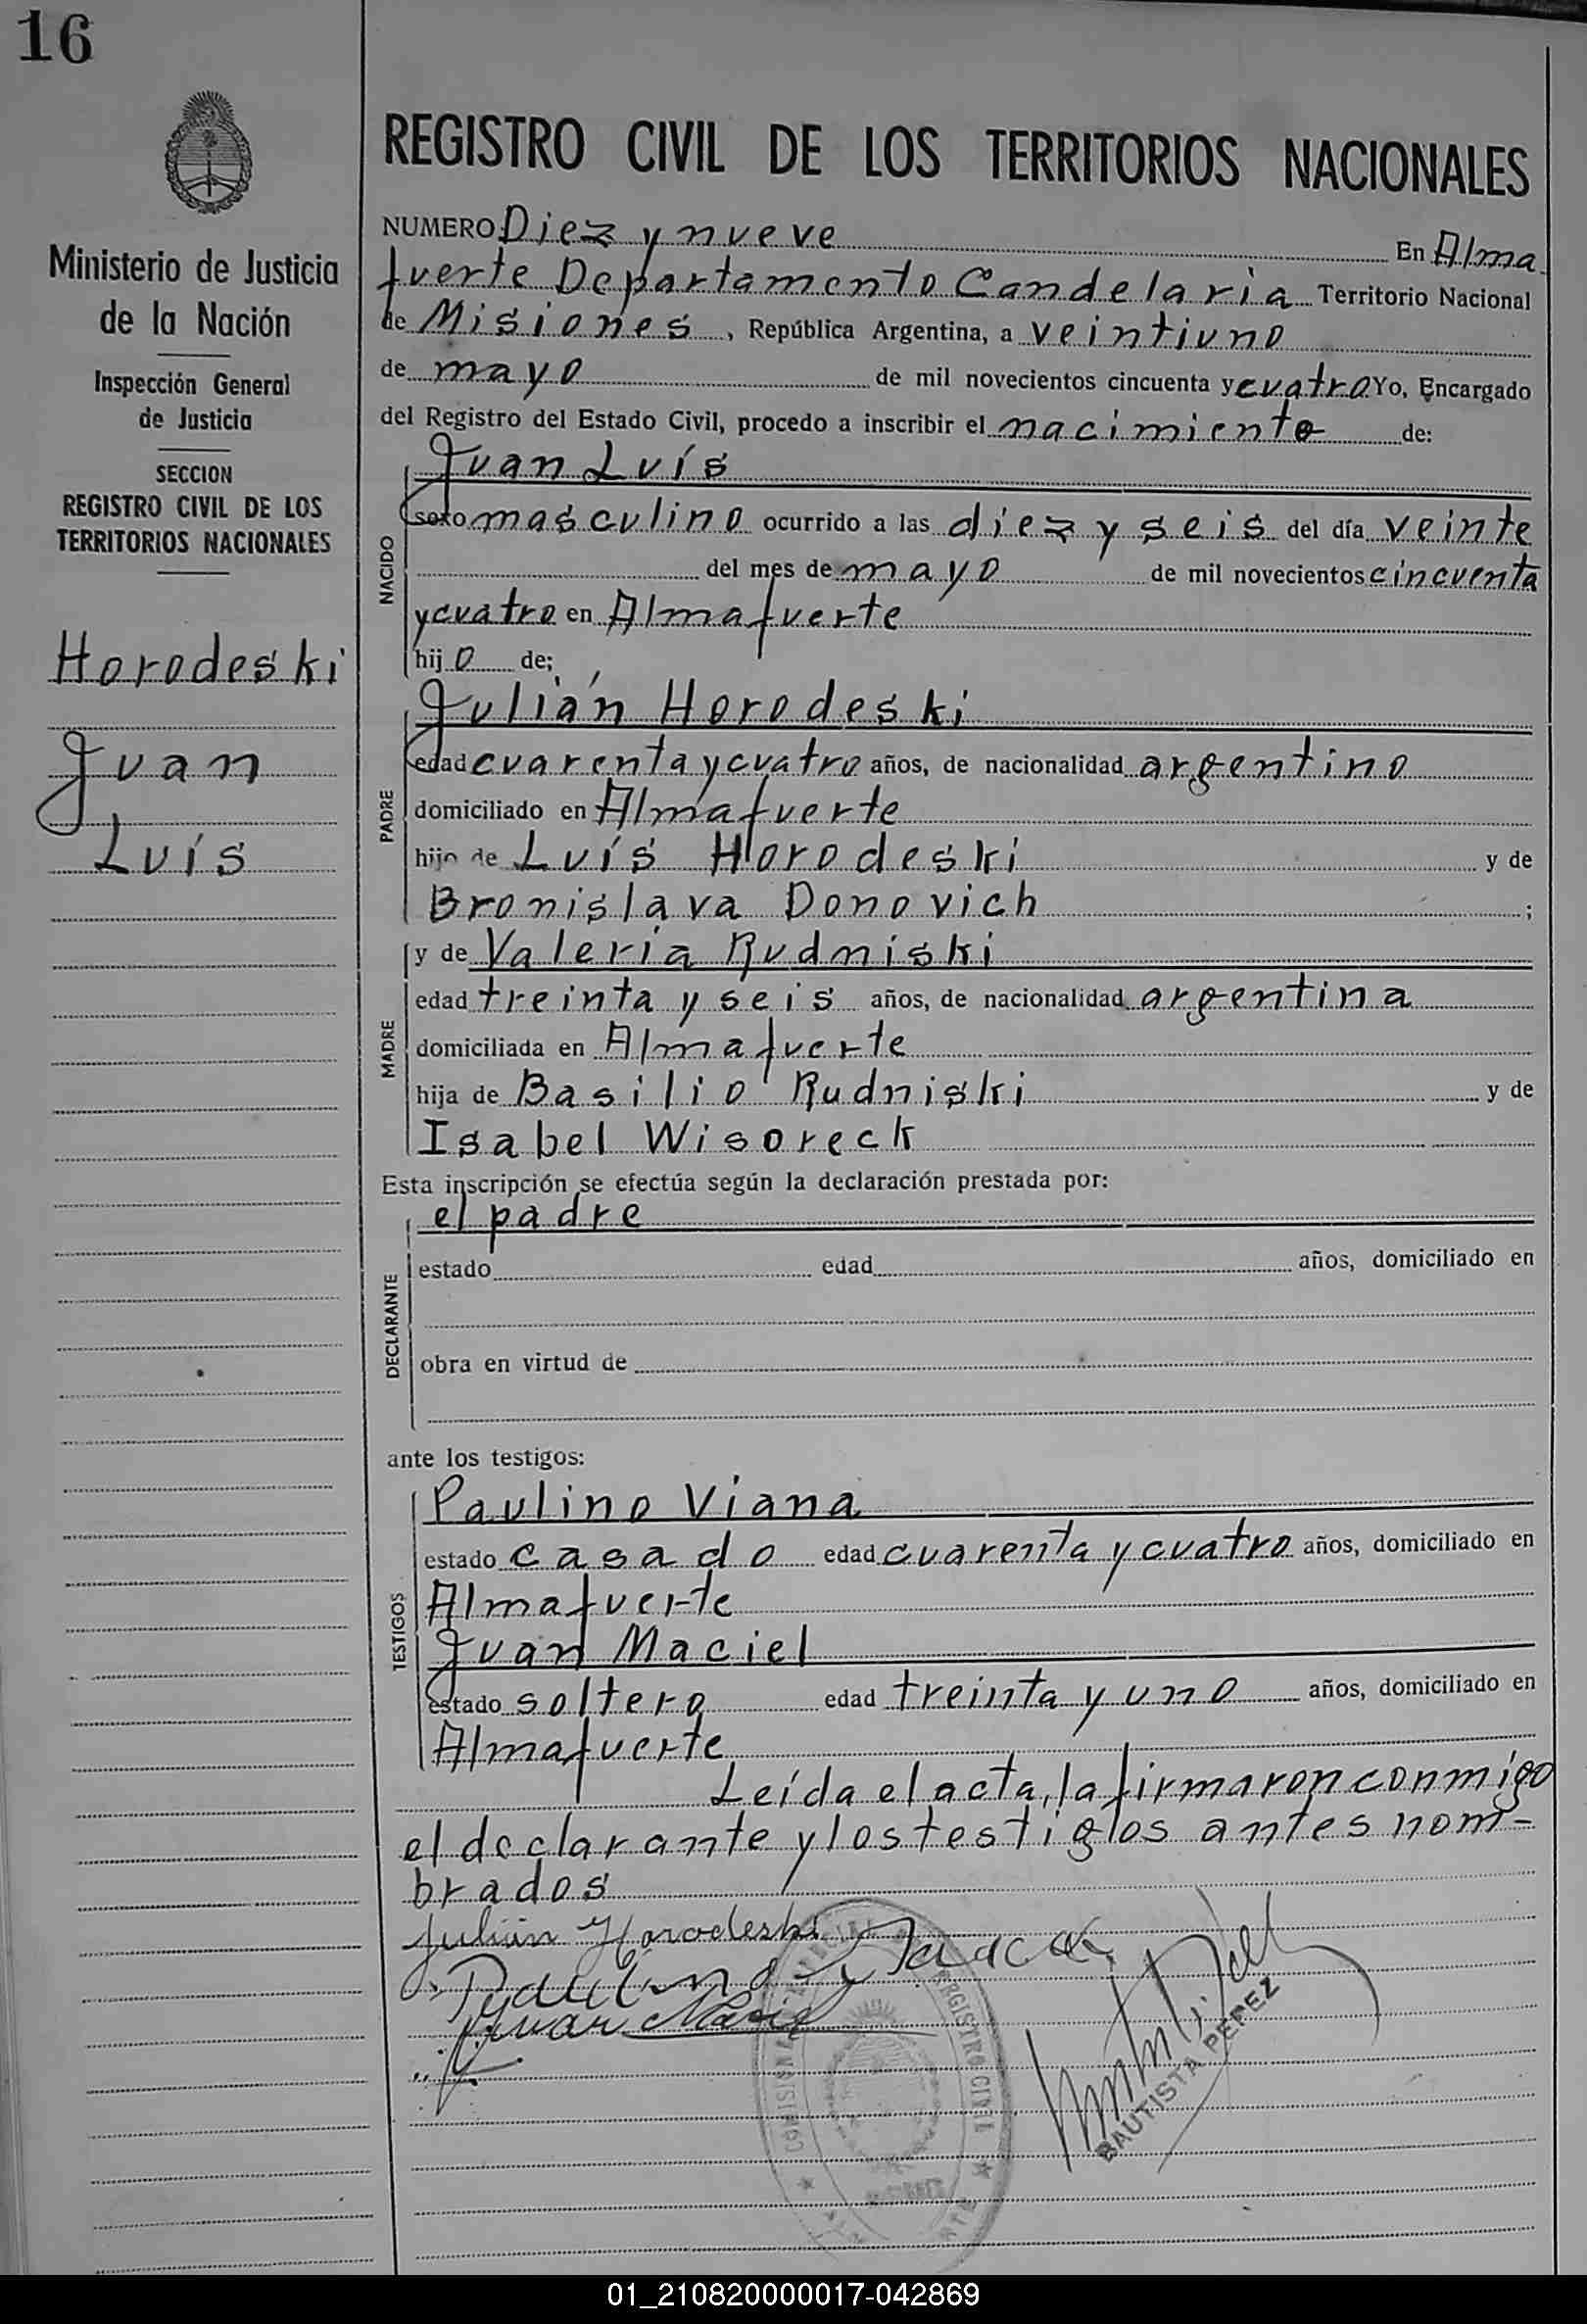 16
Ministerio de Justicia
de la Nación
Inspección General
de Justicia
SECCION
REGISTRO CIVIL DE LOS
TERRITORIOS NACIONALES
Horodeski
Juan
Luís
REGISTRO CIVIL DE LOS TERRITORIOS NACIONALES
NUMERO Diez y nueve En Alma
fuerte Departamento Candelaria Territorio Nacional
de Misiones, República Argentina, a veintiuno
de mayo de mil novecientos cincuenta y cuatro Yo, Encargado
del Registro del Estado Civil, procedo a inscribir el nacimiento de:
Juan Luís
NACIDO
sexo masculino ocurrido a las diez y seis del día veinte
del mes de mayo de mil novecientos cincuenta
y cuatro en Almafuerte
hijo de;
Julián Horodeski
PADRE
edad cuarenta y cuatro años, de nacionalidad argentino
domiciliado en Almafuerte
hijo de Luís Horodeski y de
Bronislava Donovich ;
MADRE
y de Valeria Rudniski
edad treinta y seis años, de nacionalidad argentina
domiciliada en Almafuerte
hija de Basilio Rudniski y de
Isabel Wisoreck
Esta inscripción se efectúa según la declaración prestada por:
el padre
DECLARANTE
estado edad años, domiciliado en
obra en virtud de
ante los testigos:
TESTIGOS
Paulino Viana
estado casado edad cuarenta y cuatro años, domiciliado en
Almafuerte
Juan Maciel
estado soltero edad treinta y uno años, domiciliado en
Almafuerte
Leída el acta, la firmaron conmigo
el declarante y los testiglos antes nom-
brados
Julián Horodeski
Paulino
Juan Maciel
BAUTISTA PEREZ
REGISTRO CIVIL
01_210820000017-042869